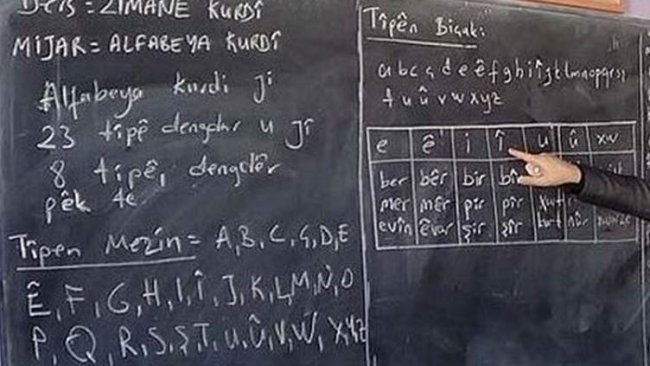 Ders = ZIMANE KURDÎ
MIJAR = ALFABEYA KURDÎ
Alfabeya kurdi ji
23 tîpê dengdar u Jî
8 tîpê, dengdêr
pêk te
Tîpen Mezin = A, B, C, Ç, D, E
Ê, F, G, H, I, Î, J, K, L, M, N, O
P, Q, R, S, Ş, T, U, Û, V, W, X, Y, Z
Tîpên Biçuk:
a b c ç d e ê f g h i î j k l m n o p q r s ş
t u û v w x y z
e ê i î u û xw
ber bêr bir bîr
mer mêr pir pîr
evîn êvar şir şîr kurt nûr